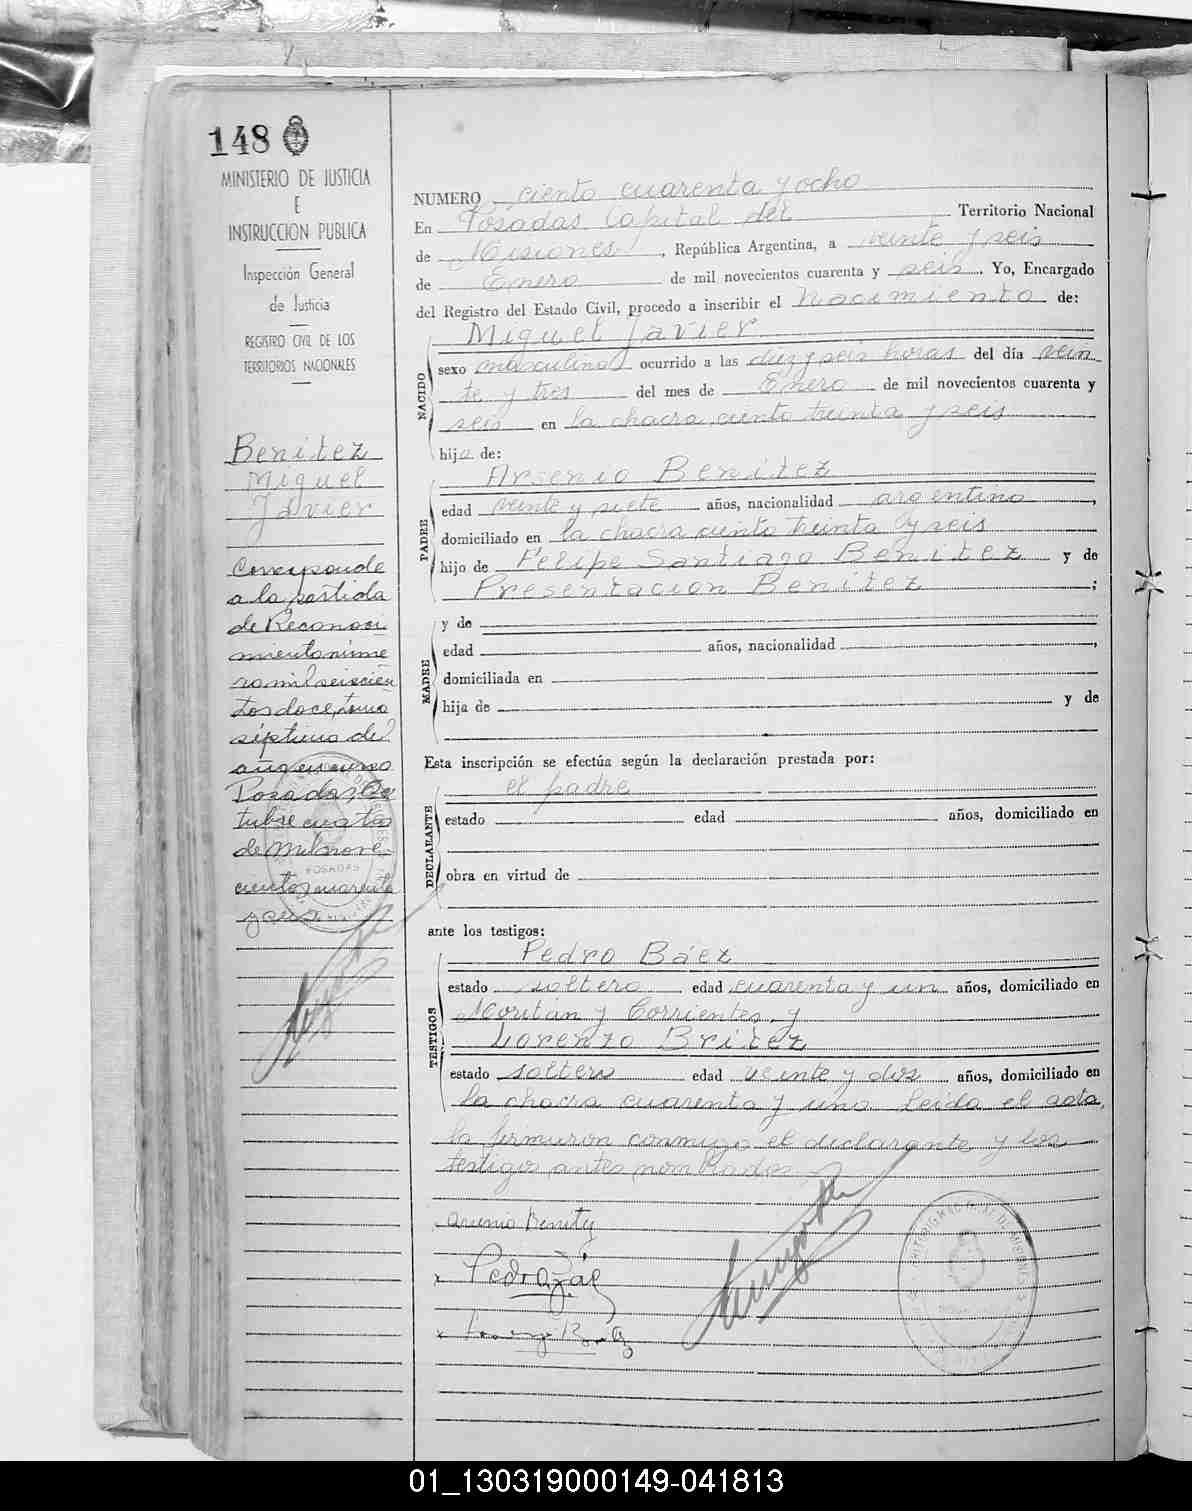 148
MINISTERIO DE JUSTICIA
E
INSTRUCCION PUBLICA
Inspección General
de Justicia
REGISTRO CIVIL DE LOS
TERRITORIOS NACIONALES
Benitez
Miguel
Javier
Corresponde
a la partida
de Reconoci
miento núme
ro mil seiscien
tos doce, tomo
séptimo del
año en curso
Posadas, Oc
tubre cuatro
de mil nove
cientos cuarenta
y seis
POSADAS
NUMERO ciento cuarenta y ocho
En Posadas Capital del Territorio Nacional
de Misiones, República Argentina, a veinte y seis
de Enero de mil novecientos cuarenta y seis. Yo, Encargado
del Registro del Estado Civil, procedo a inscribir el Nacimiento de:
NACIDO
Miguel Javier
sexo masculino ocurrido a las diez y seis horas del día vein
te y tres del mes de Enero de mil novecientos cuarenta y
seis en la chacra ciento treinta y seis
hijo de:
PADRE
Arsenio Benitez
edad veinte y siete años, nacionalidad argentino,
domiciliado en la chacra ciento treinta y seis
hijo de Felipe Santiago Benitez y de
Presentacion Benitez;
MADRE
y de
edad años, nacionalidad ,
domiciliada en
hija de y de
Esta inscripción se efectúa según la declaración prestada por:
DECLARANTE
el padre
estado edad años, domiciliado en
obra en virtud de
ante los testigos:
TESTIGOS
Pedro Báez
estado soltero edad cuarenta y un años, domiciliado en
y Corrientes, y
Lorenzo Britez
estado soltero edad veinte y dos años, domiciliado en
la chacra cuarenta y uno. Leida el acta,
la firmaron conmigo el declarante y los
testigos antes nombrados
Arsenio Benitez
Pedro Báez